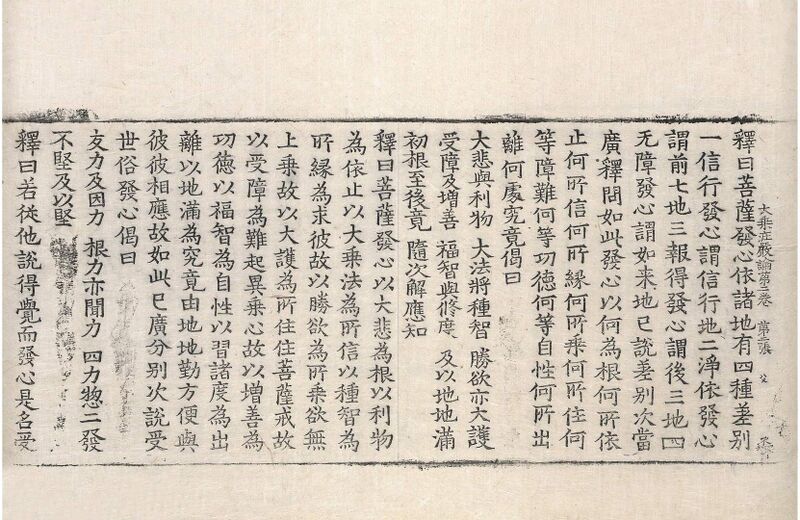 大乘莊嚴論第二卷 第三張 父
釋曰菩薩發心依諸地有四種差別
一信行發心謂信行地二淨依發心
謂前七地三報得發心謂後三地四
无障發心謂如来地已說差別次當
廣釋問如此發心以何為根何所依
止何所信何所緣何所乘何所住何
等障難何等功德何等自性何所出
離何處究竟偈曰
大悲與利物 大法將種智 勝欲亦大護
受障及增善 福智與修度 及以地地滿
初根至後竟 隨次解應知
釋曰菩薩發心以大悲為根以利物
為依止以大乘法為所信以種智為
所緣為求彼故以勝欲為所乘欲無
上乘故以大護為所住住菩薩戒故
以受障為難起異乘心故以增善為
功德以福智為自性以習諸度為出
離以地滿為究竟由地地勤方便與
彼彼相應故如此已廣分別次說受
世俗發心偈曰
友力及因力 根力亦聞力 四力惣二發
不堅及以堅
釋曰若從他說得覺而發心是名受